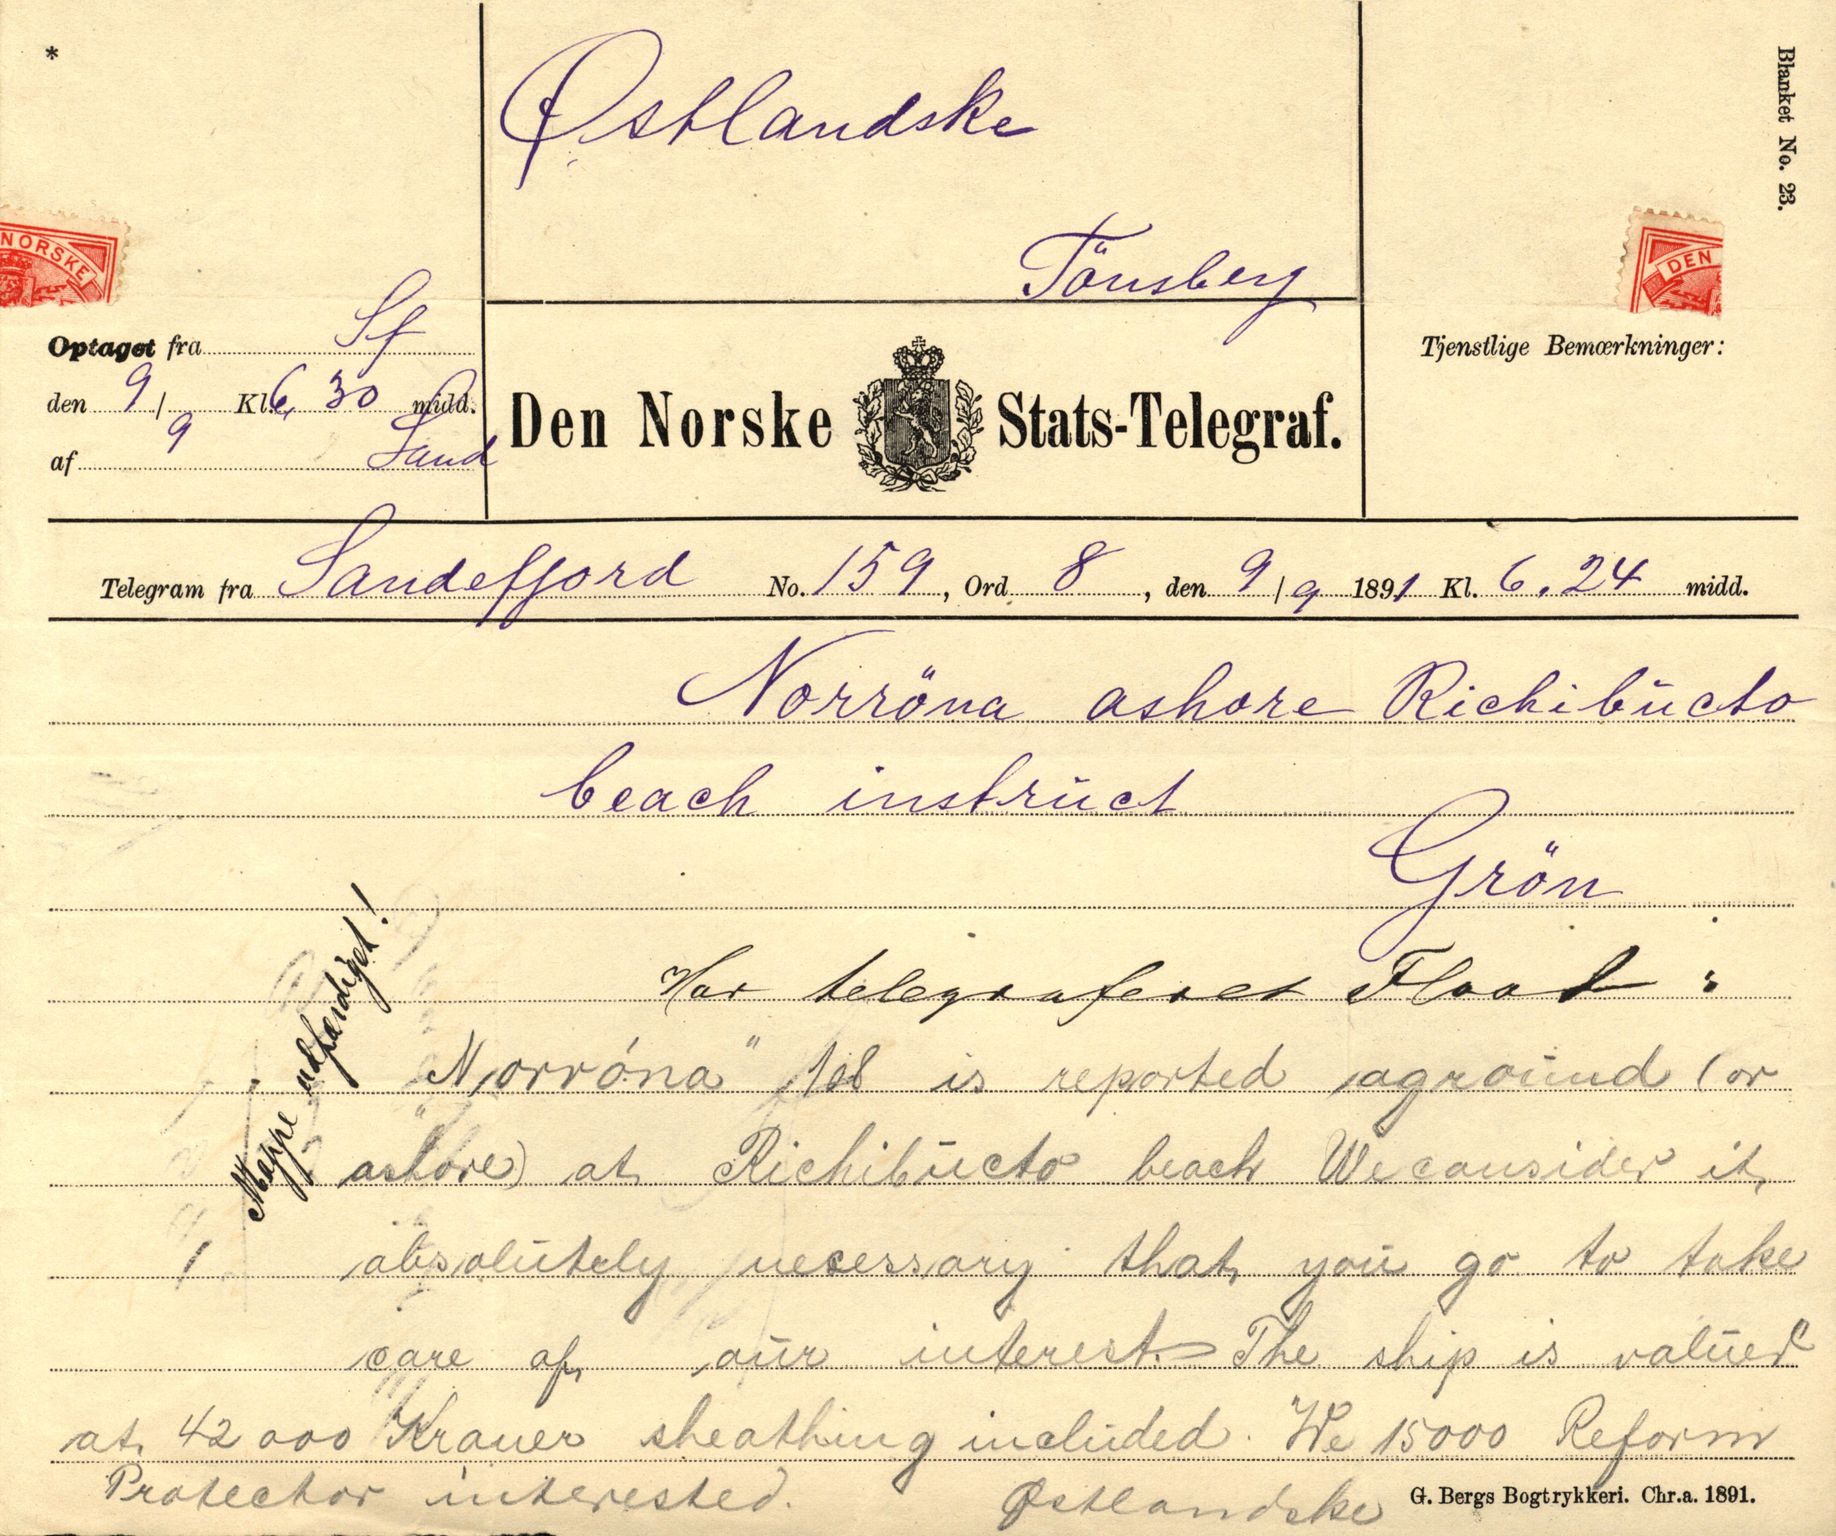 *
Blanket No. 23.
Østlandske
Tönsberg
NORSKE
DEN
Optaget fra Sf
den 9/9 Kl. 6,30 midd.
af Sand
Den Norske Stats-Telegraf.
Tjenstlige Bemærkninger:
Telegram fra Sandefjord No. 159, Ord 8, den 9/9 1891 Kl. 6.24 midd.
Norröna ashore Richibucto
beach instruct
Grön
Mappe udfærdiget!
Har telegraferet Flood:
"Norróna" 108 is reported aground (or
ashore) at Richibucto beach We consider it
absolutely necessary that you go to take
care of our interest. The ship is valued
at 42000 Kroner sheathing included. We 15000 Reform
Protector interested. Østlandske
G. Bergs Bogtrykkeri. Chr.a. 1891.